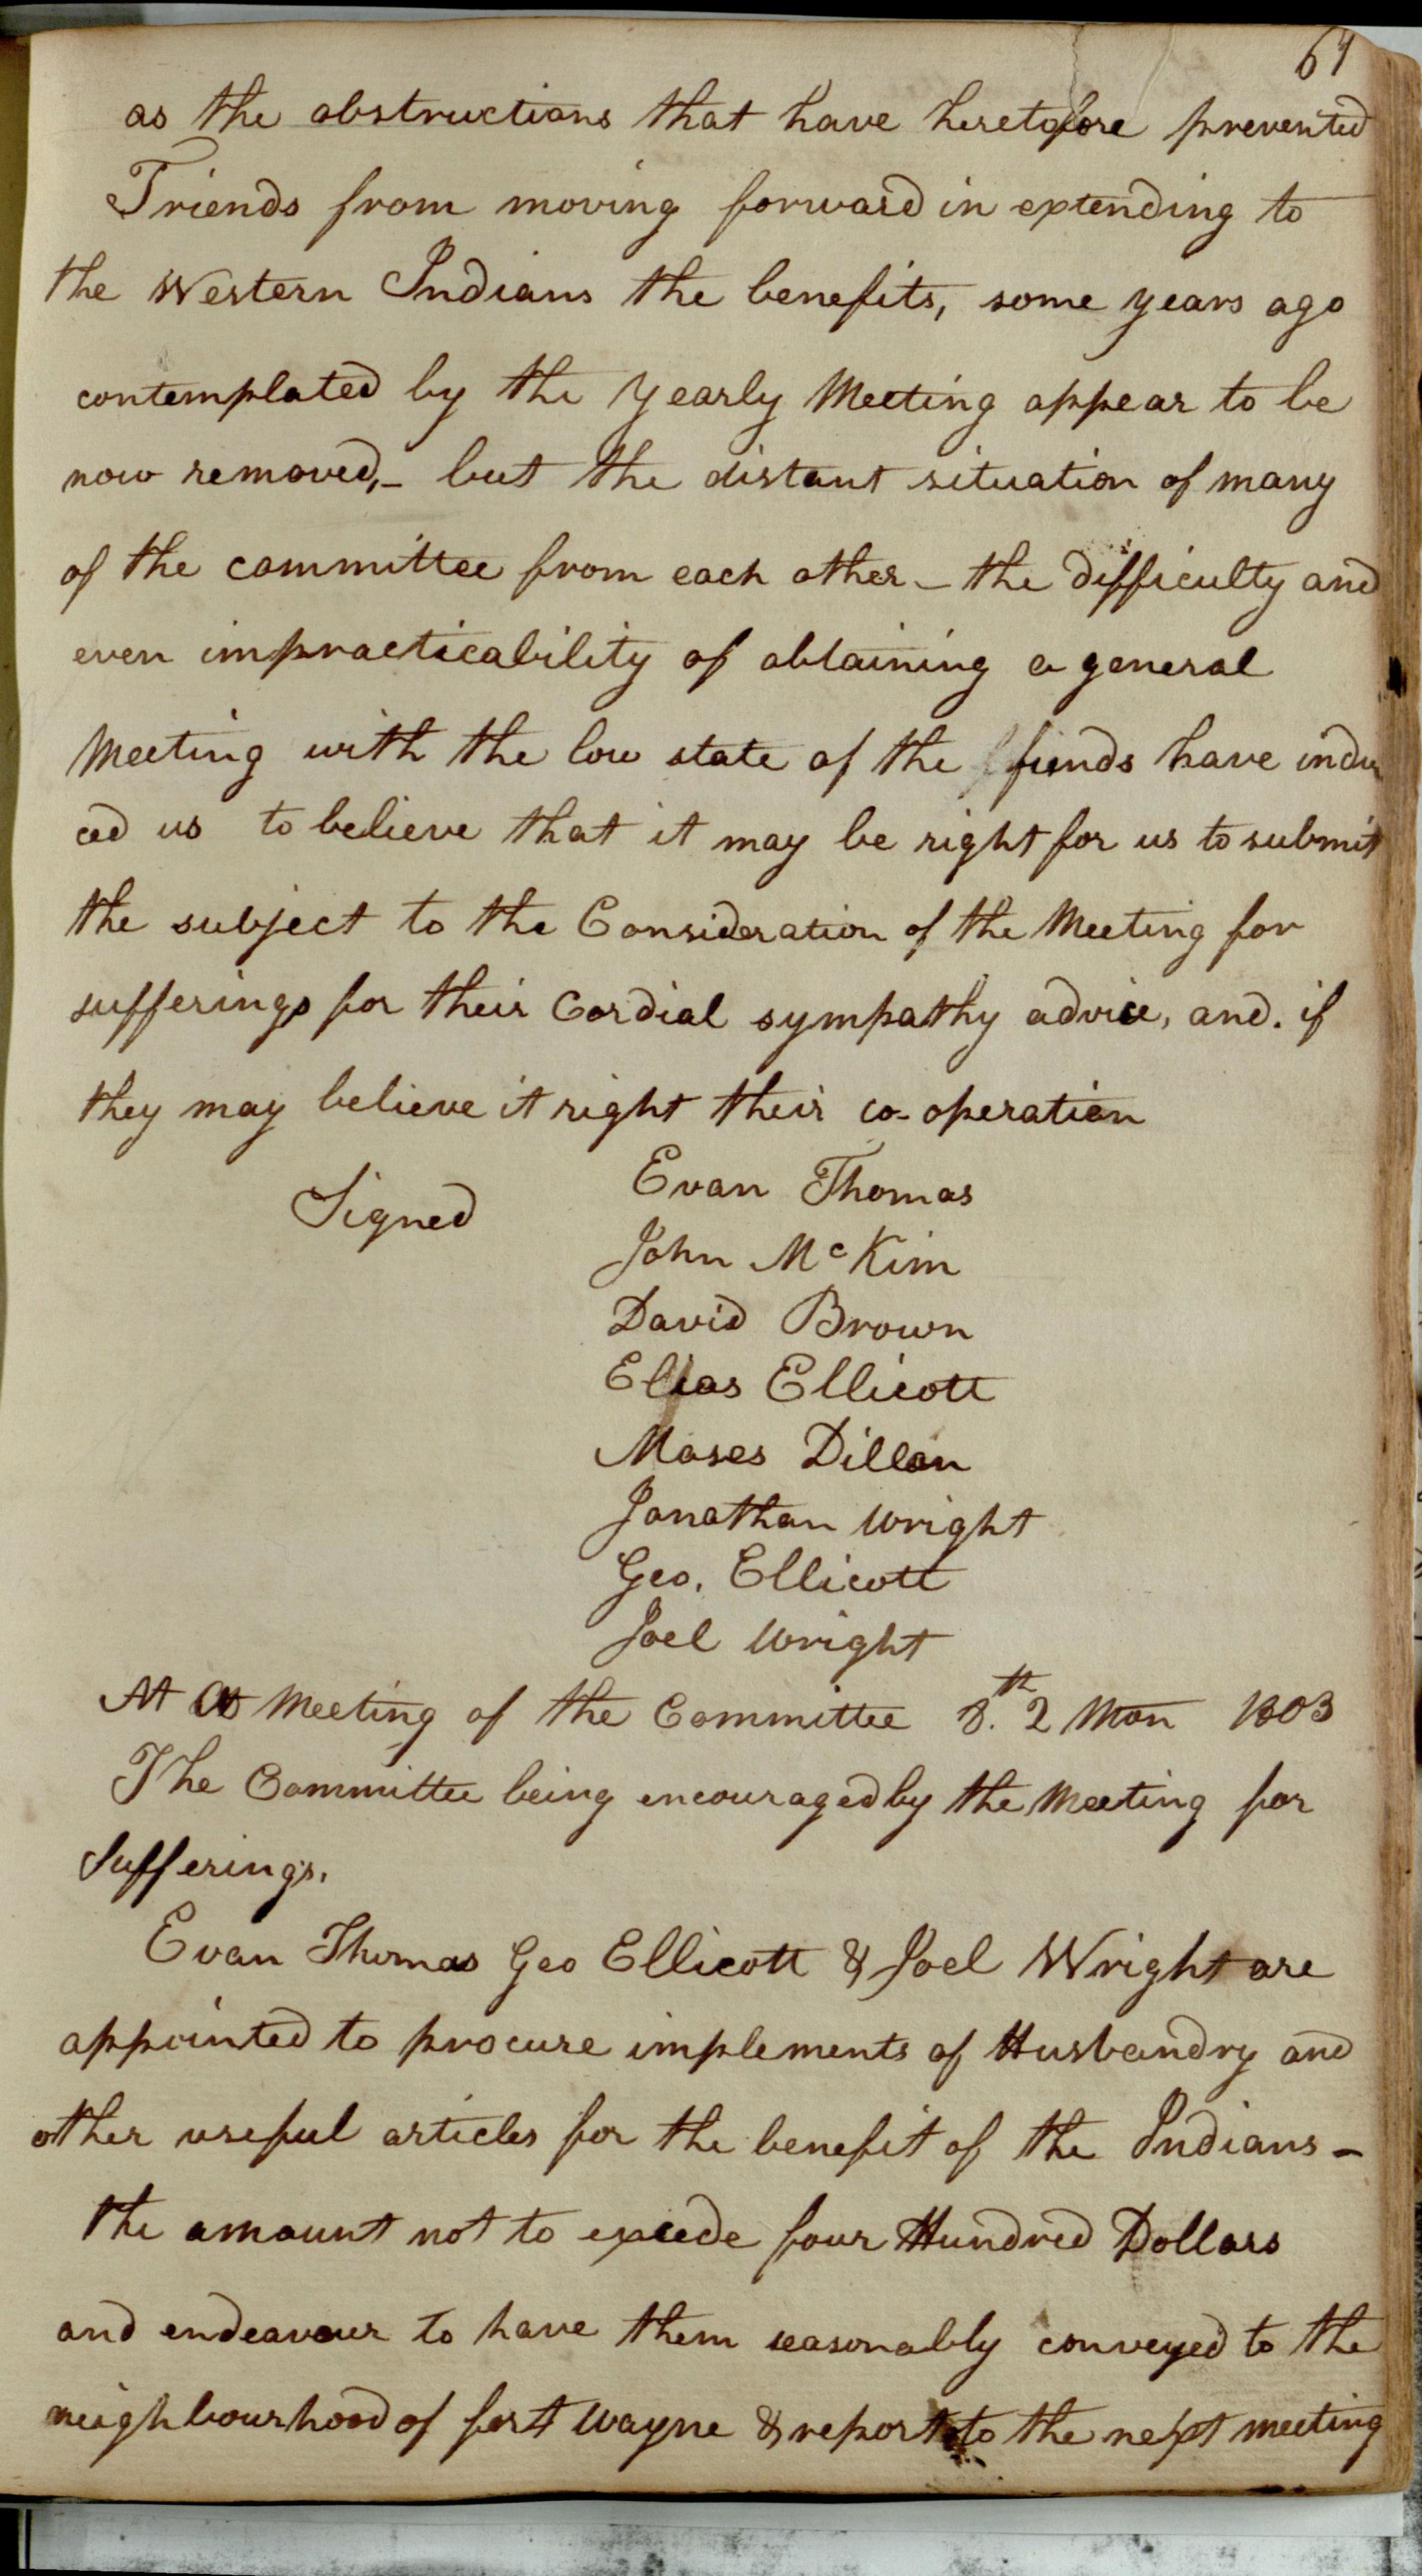 61
as the obstructions that have heretofore prevented
Friends from moving forward in extending to
the Western Indians the benefits, some years ago
contemplated by the Yearly Meeting appear to be
now removed,- but the distant situation of many
of the committee from each other - the difficulty and
even impracticability of obtaining a general
Meeting with the low state of the funds have indu
ced us to believe that it may be right for us to submit
the subject to the Consideration of the Meeting for
sufferings for their Cordial sympathy advice, and. if
they may believe it right their co-operation
Signed
Evan Thomas
John McKim
David Brown
Elias Ellicott
Moses Dillon
Jonathan Wright
Geo. Ellicott
Joel Wright
At a Meeting of the Committee 8.th 2 Mon 1803
The Committee being encouraged by the Meeting for
Sufferings.
Evan Thomas Geo Ellicott & Joel Wright are
appointed to procure implements of Husbandry and
other useful articles for the benefit of the Indians -
the amount not to excede four Hundred Dollars
and endeavour to have them seasonably conveyed to the
neighbourhood of fort Wayne & report to the next meeting